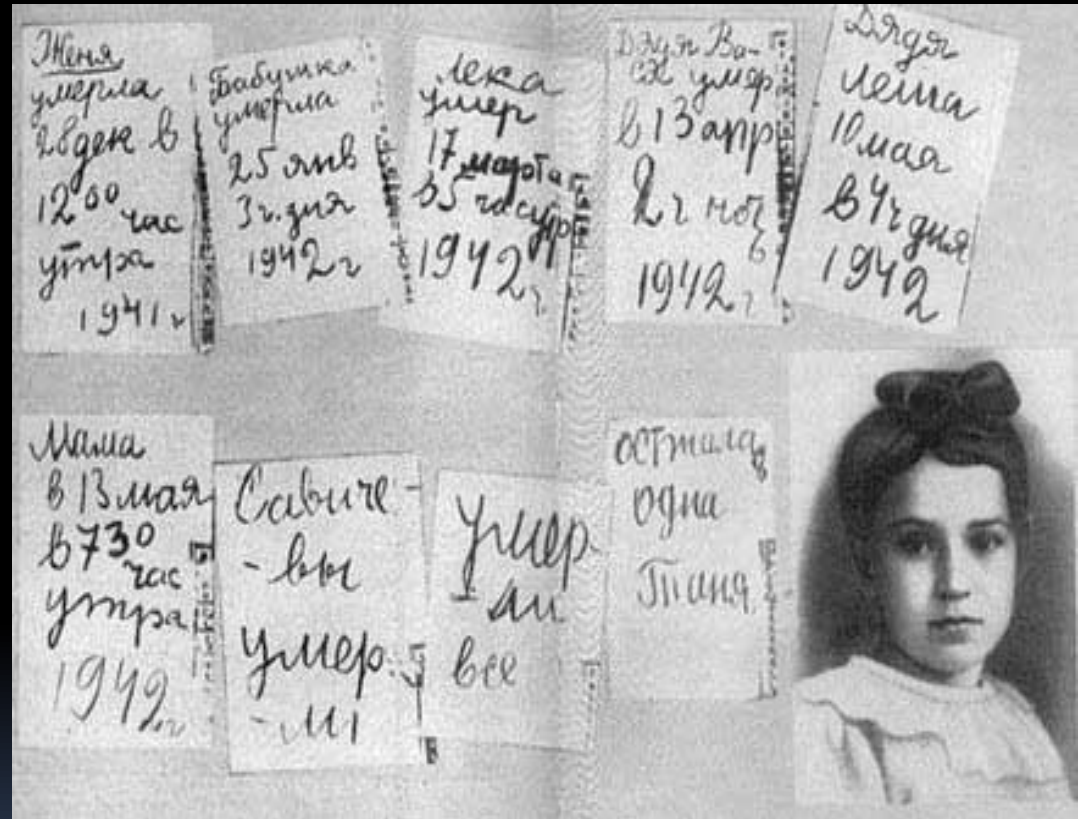 Женя
умерла
28 дек в
12 00 час
утра
1941 г
Бабушка
умерла
25 янв
3 ч. дня
1942 г
Лека
умер
17 марта
в 5 час утр
1942 г
Дядя Ва-
ся умер
в 13 апр
2 ч ноч
1942 г
Дядя
Леша
10 мая
в 4 ч дня
1942
Мама
в 13 мая
в 7 30
час
утра
1942 г
Савиче-
-вы
умер
-ли
Умер
-ли
все
осталась
одна
Таня